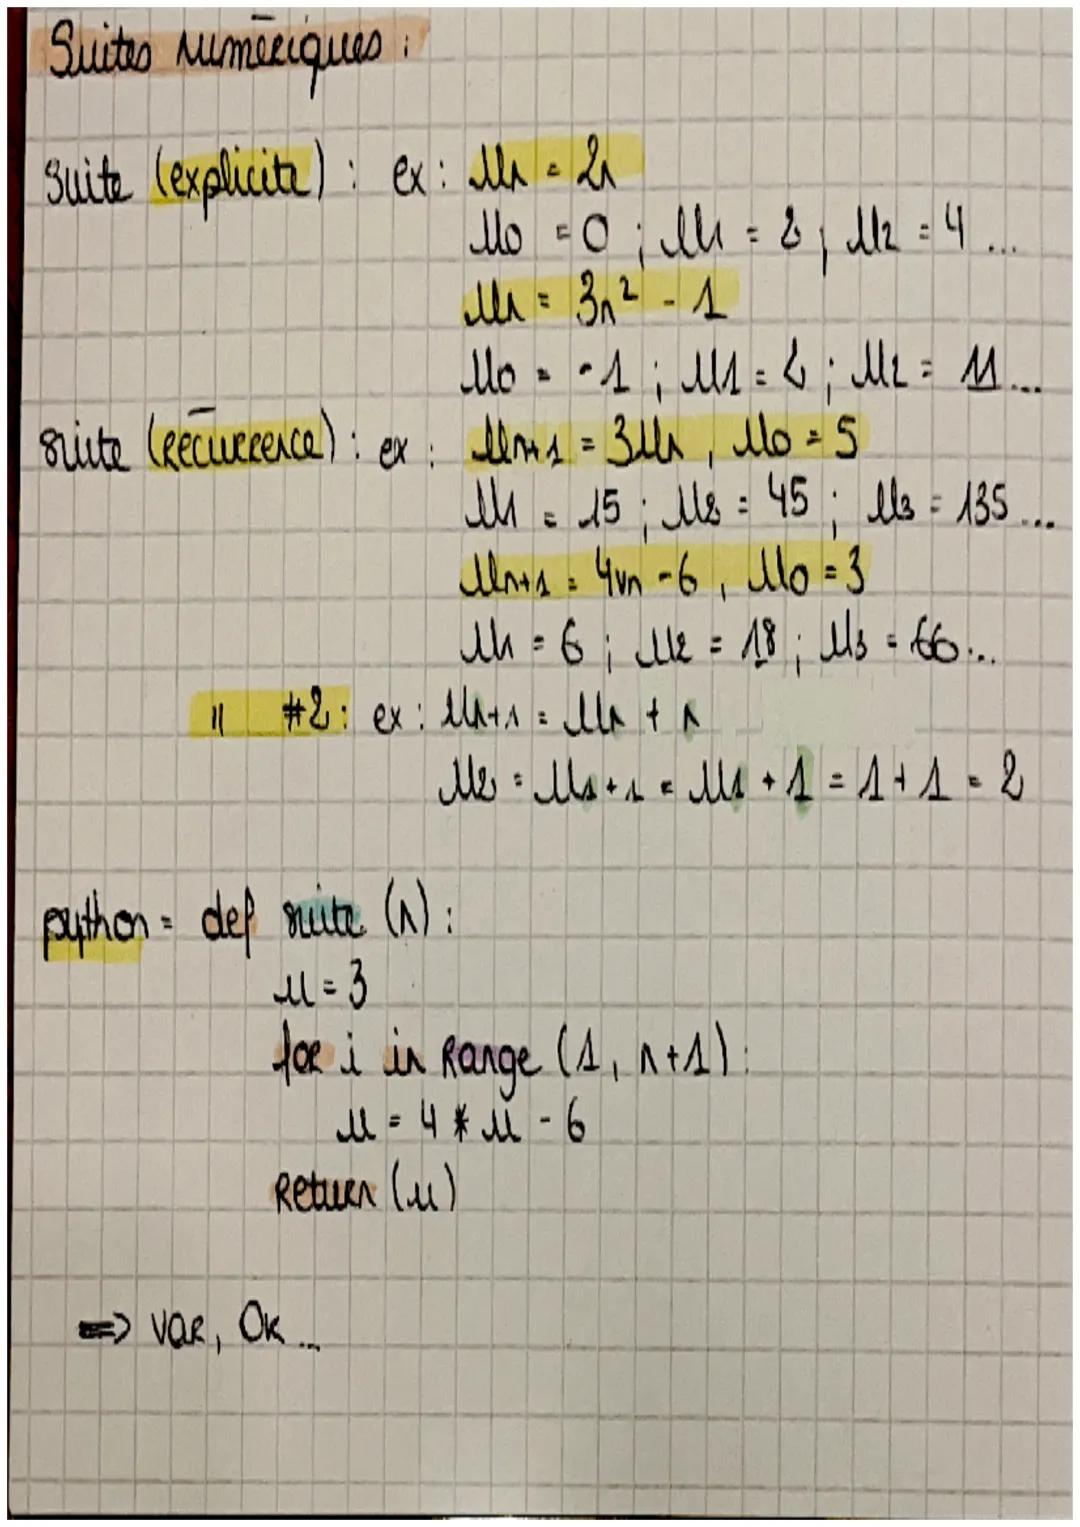 Suites numériques :
Suite (explicite) : ex : Un = 2n
U0 = 0 ; U1 = 2 ; U2 = 4 ...
Un = 3n² - 1
U0 = -1 ; U1 = 2 ; U2 = 11 ...
suite (récurrence) : ex : Un+1 = 3Un , U0 = 5
U1 = 15 ; U2 = 45 ; U3 = 135 ...
Un+1 = 4un - 6 , U0 = 3
U1 = 6 ; U2 = 18 ; U3 = 66 ...
" #2 : ex : Un+1 = Un + n
U2 = U1+1 = U1 + 1 = 1 + 1 = 2
python = def suite (n) :
u = 3
for i in range (1, n+1) :
u = 4 * u - 6
return (u)
=> var, Ok ...